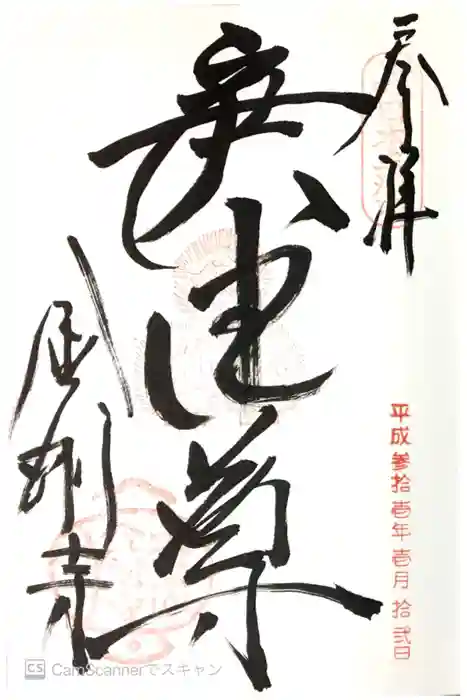 奉拝
無動尊
金剛寺
平成参拾壱年壱月拾弐日
CS CamScannerでスキャン